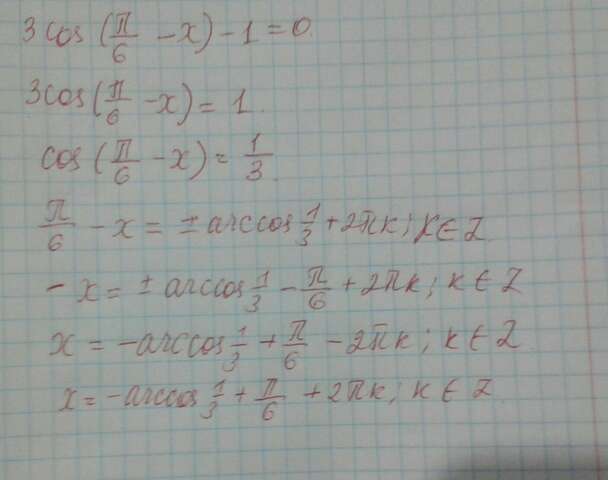 3cos(π/6 - x) - 1 = 0
3cos(π/6 - x) = 1.
cos(π/6 - x) = 1/3.
π/6 - x = ± arccos 1/3 + 2πk; k ∈ Z
- x = ± arccos 1/3 - π/6 + 2πk; k ∈ Z
x = -arccos 1/3 + π/6 - 2πk; k ∈ Z
x = -arccos 1/3 + π/6 + 2πk; k ∈ Z